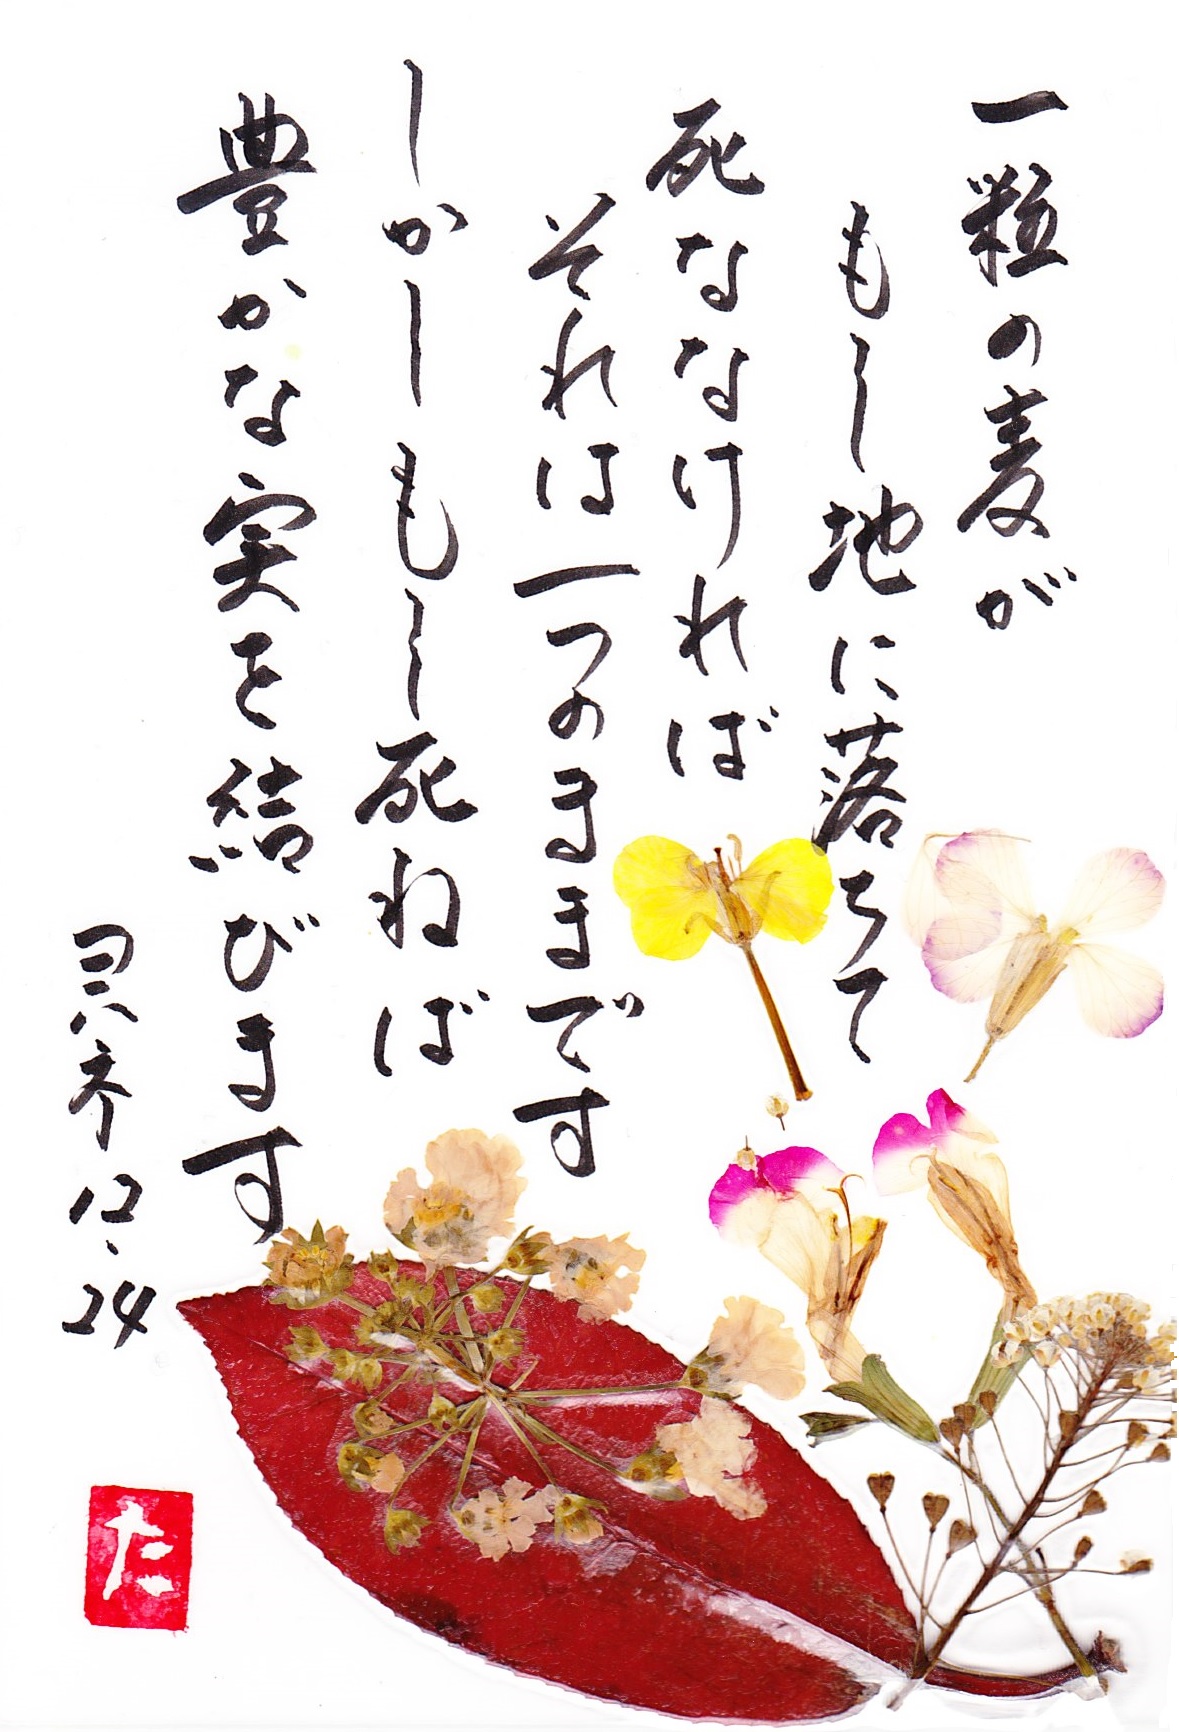 一粒の麦が
もし地に落ちて
死ななければ
それは一つのままです
しかしもし死ねば
豊かな実を結びます
ヨハネ12.24
た